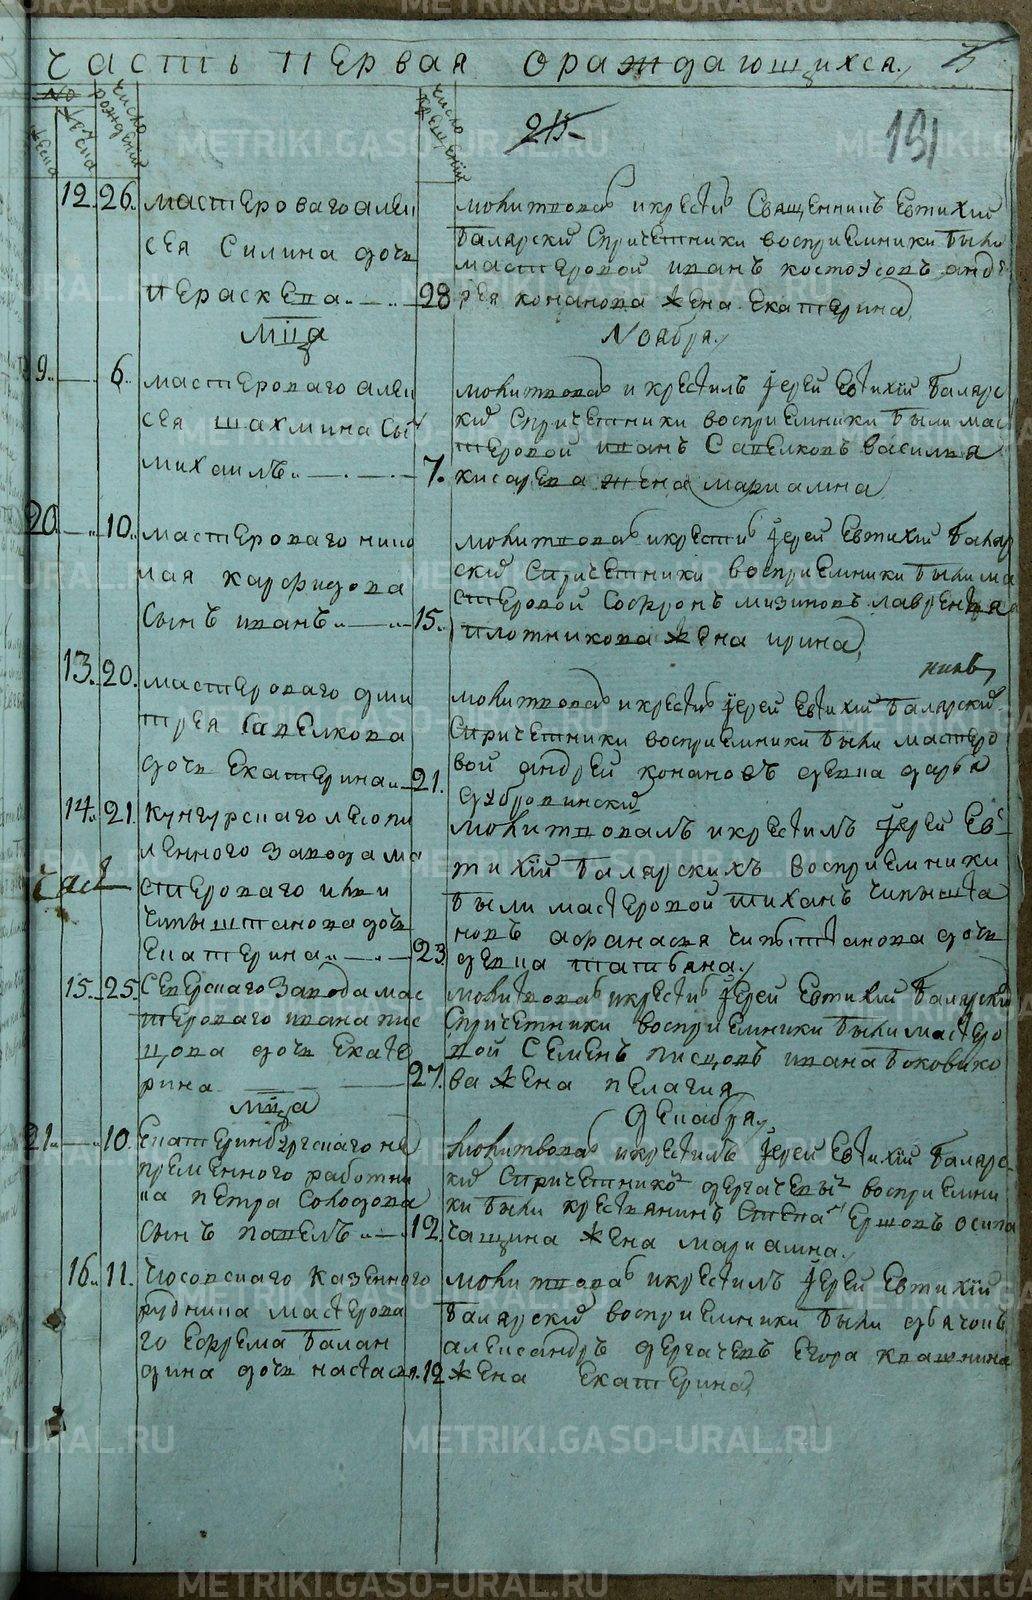 Часть первая ораждающихся.
215
191
№
мужеска
женска
число рождений
число крещений
12. 26. мастероваго алек
сея Силина дочь
пераскева 28
молитвовалъ и крестилъ Священникъ Евтихий
Балярский Спричетники восприемники были
мастеровой иванъ
рея конанова жена Екатерина
мца Ноября
19. 6. мастероваго алек
сея шахмина сынъ
михаилъ 7.
молитвовалъ и крестилъ иерей Евтихий Балярс
кий Спричетники восприемники были мас
теровой иванъ Сапелковъ василья
кисарева жена мариамна
20. 10. мастероваго нико
лая карфидова
сынъ иванъ 15.
молитвовалъ и крестилъ иерей Евтихий Баляр
ский Спричетники восприемники были ма
стеровой Софронъ мизиновъ лаврентья
плотникова жена ирина
13. 20. мастероваго дми
трея Сапелкова
дочь Екатерина 21.
молитвовалъ и крестилъ иерей Евтихий Балярский
Спричетники восприемники были мастеро
вой андрей конановъ девица дарья
дубровинский
14. 21. Кунгурскаго лесопи
леннаго завода ма
стероваго ильи
чипыштанова дочь
Екатерина 23.
молитвовалъ и крестилъ иерей Ев
тихий Балярскихъ восприемники
были мастеровой тиханъ чипышта
новъ афанасья чипыштанова дочь
девица татьяна
15. 25. Северскаго завода мас
тероваго ивана пис
цова дочь Екате
рина 27.
молитвовалъ и крестилъ иерей Евтихий Балярский
Спричетники восприемники были мастеро
вой Семенъ писцовъ ивана Боковико
ва жена пелагия
мца Декабря
21. 10. Екатеринбургскаго не
пременного работни
ка петра Солодова
сынъ павелъ 12.
молитвовалъ и крестилъ иерей Евтихий Балярс
кий восприемни
ки были крестьянинъ Ершовъ осипа
чащина жена мариамна
16. 11. Чюсовскаго казеннаго
рудника мастерова
го Ефрема Балан
дина дочь настасья 12
молитвовалъ и крестилъ иерей Евтихий
Балярский восприемники были дьячокъ
александръ дергачевъ Егора квашнина
жена Екатерина
METRIKI.GASO-URAL.RU